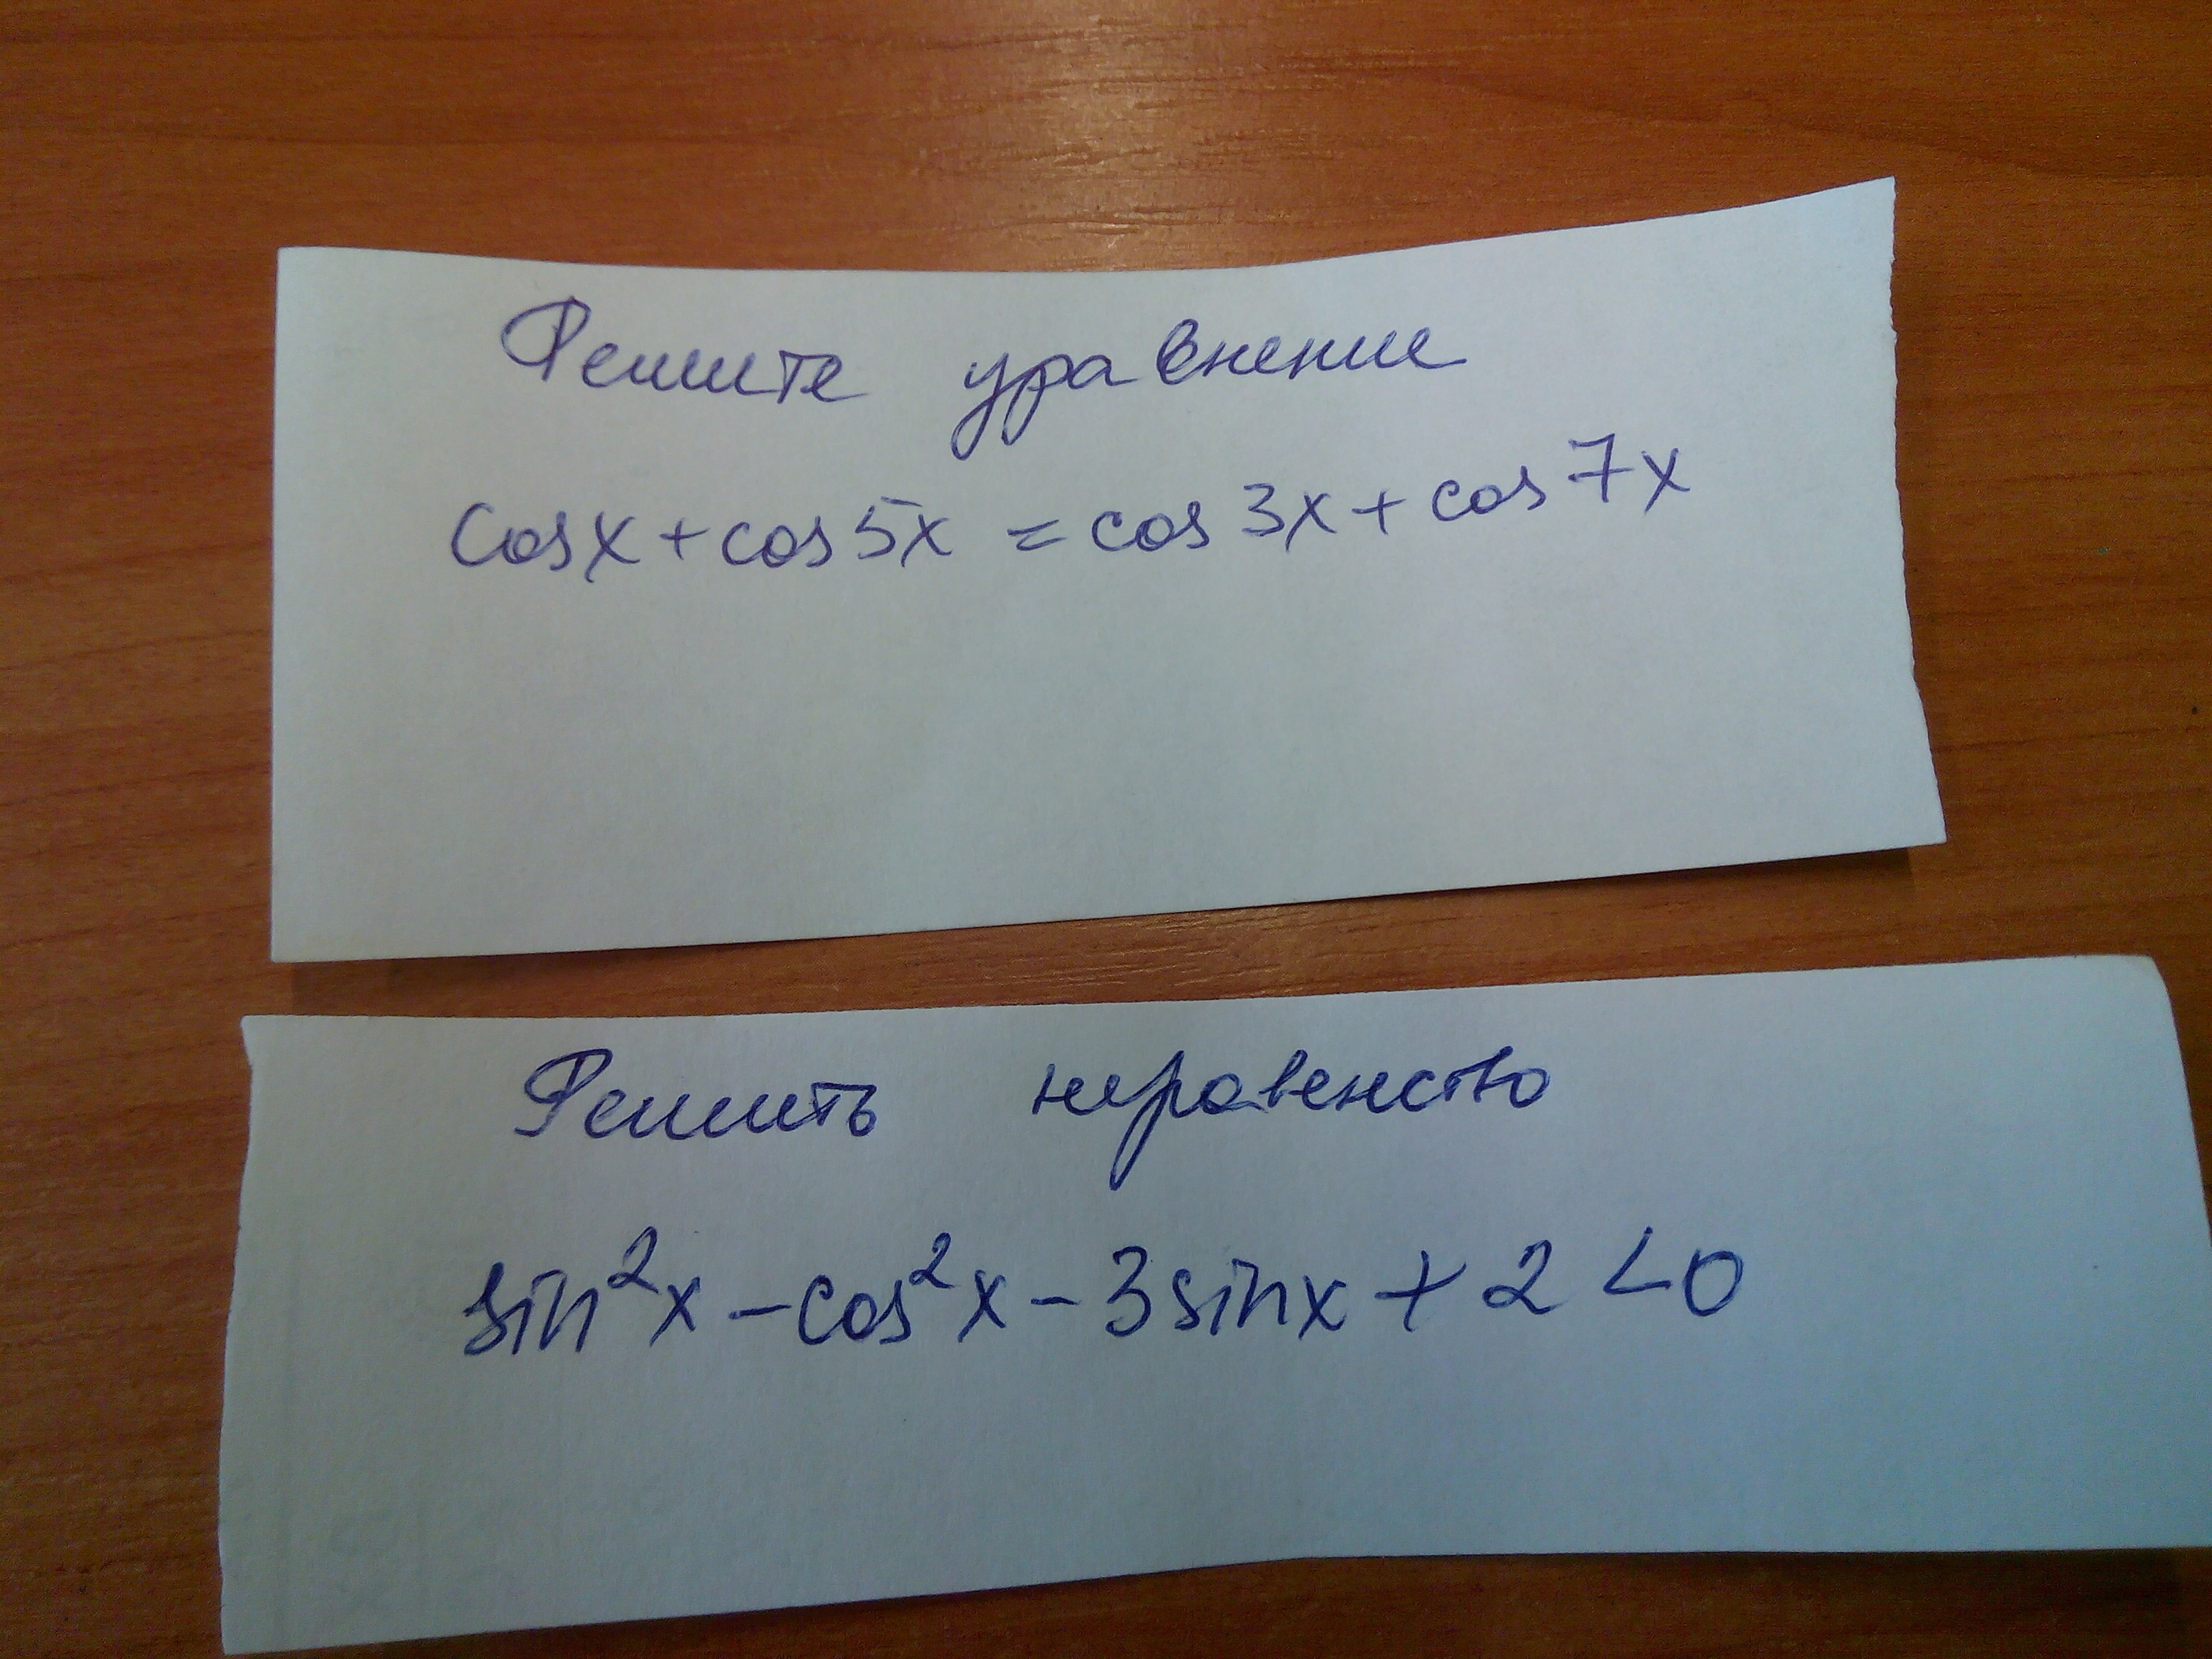 Решите уравнение
cosx + cos 5x = cos 3x + cos 7x
Решить неравенство
sin²x - cos²x - 3 sinx + 2 < 0